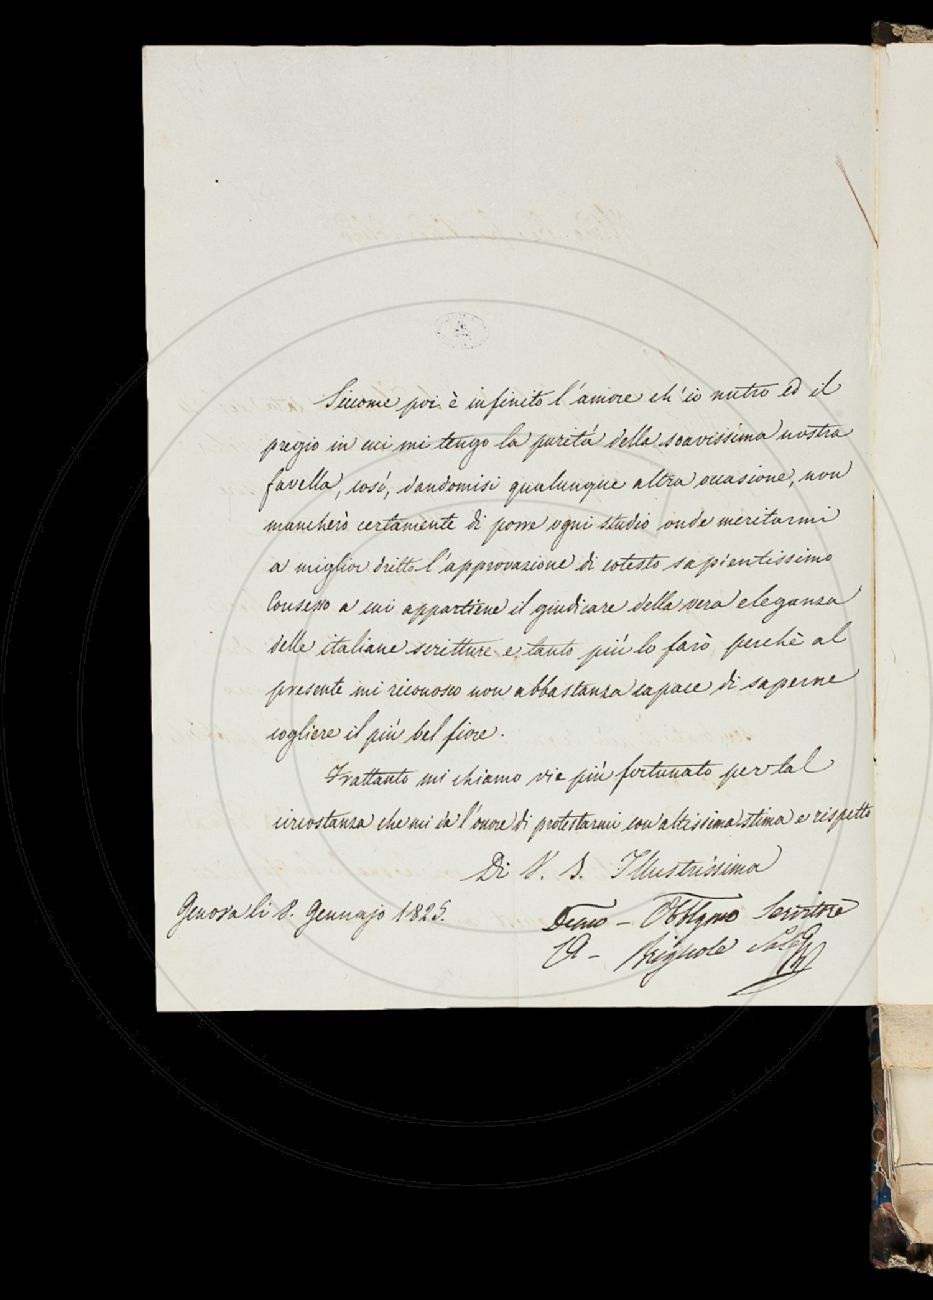 Siccome poi è infinito l'amore ch'io nutro ed il
pregio in cui mi tengo la purità della soavissima nostra
favella, così, dandomisi qualunque altra occasione, non
mancherò certamente di porre ogni studio onde meritarmi
a miglior dritto l'approvazione di cotesto sapientissimo
Consesso a cui appartiene il giudicare della vera eleganza
delle italiane scritture e tanto più lo farò perchè al
presente mi riconosco non abbastanza capace di saperne
cogliere il più bel fiore.
Frattanto mi chiamo vie più fortunato per tal
circostanza che mi da l'onore di protestarmi con altissima stima e rispetto
Di V. S. Illustrissima
Genova li 8. Gennajo 1825.
Devmo - Obblgmo Servitore
A - Brignole Sale